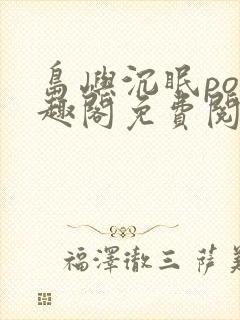 島嶼沉眠po
趣閣免費閱
福澤徹三 薩美